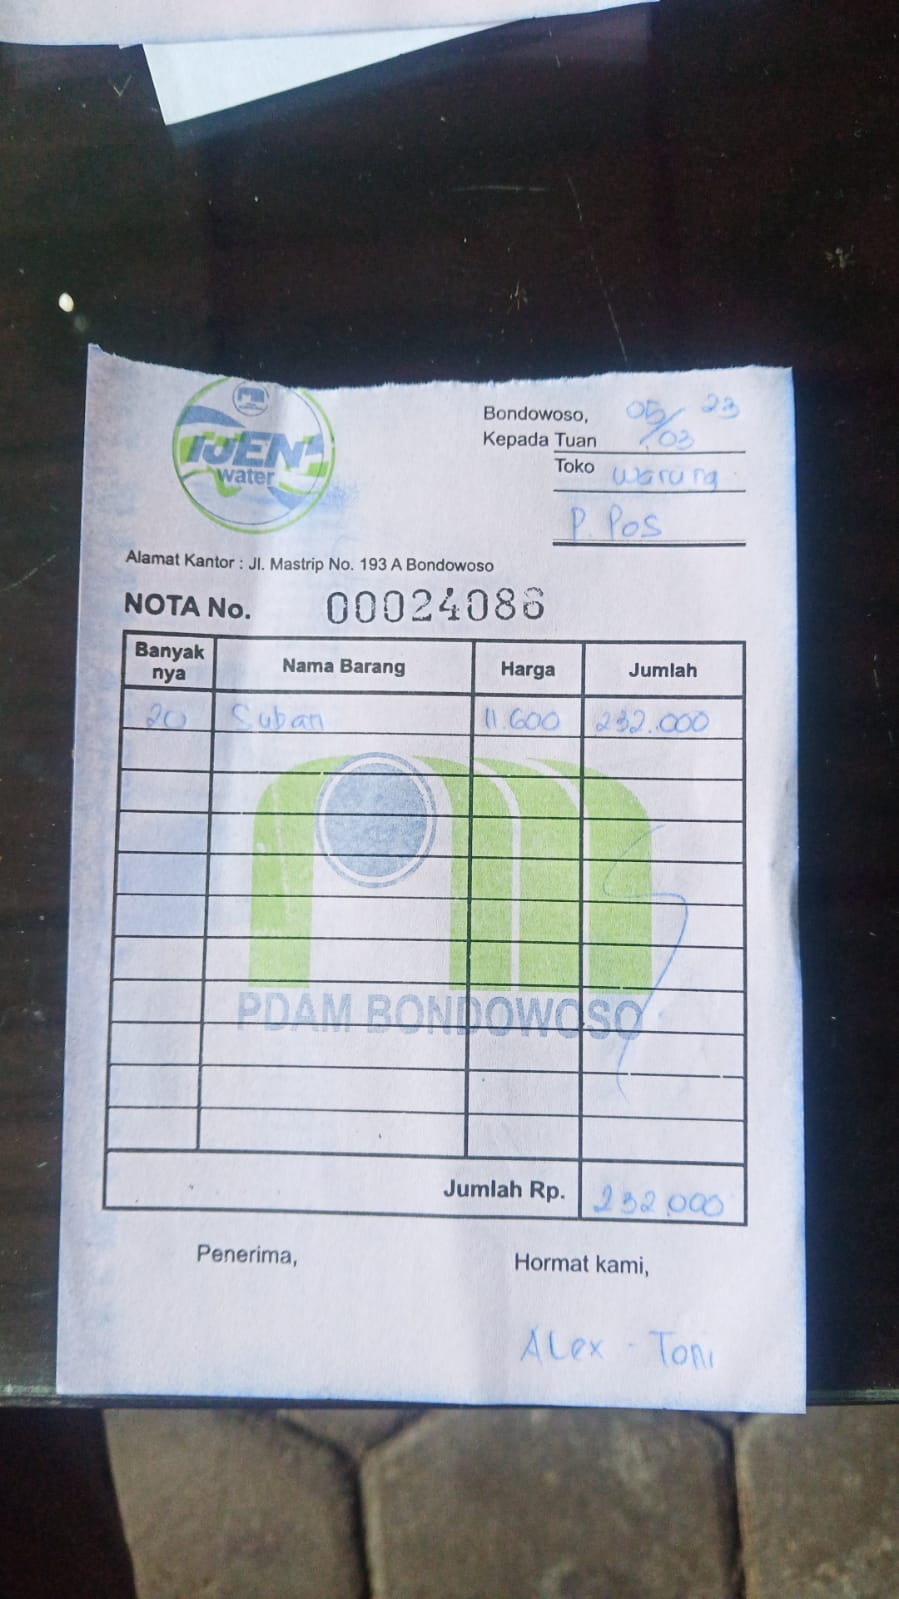 IJEN
water
Bondowoso, 05/03 23
Kepada Tuan
Toko Warung
P. Pos
Alamat Kantor : Jl. Mastrip No. 193 A Bondowoso
NOTA No. 00024086
Banyak nya Nama Barang Harga Jumlah
20 Suban 11.600 232.000
PDAM BONDOWOSO
Jumlah Rp. 232.000
Penerima, Hormat kami,
Alex - Toni